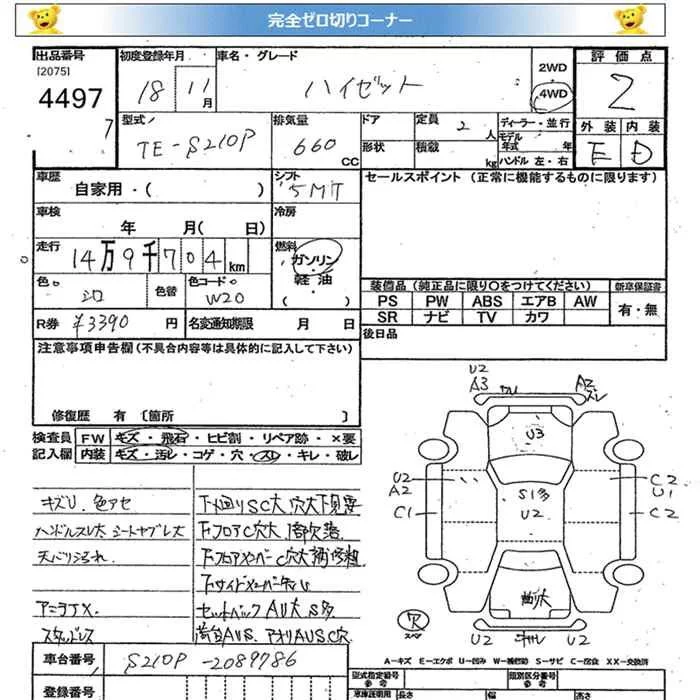 完全ゼロ切りコーナー
出品番号 初度登録年月 車名・グレード 評価点
[2075]
4497
7
18 11月 ハイゼット
2WD
4WD
2
型式 排気量 ドア 定員 2人 ディーラー・並行
TE-S210P 660 CC
形状 積載 kg モデル年式 年
ハンドル 左・右
外装 内装
E D
車歴 自家用・( )
シフト 5MT
セールスポイント (正常に機能するものに限ります)
車検 年 月( 日)
冷房
走行 14万9千704km
燃料 ガソリン・軽油・( )
色 シロ 色替 色コード W20
装備品 (純正品に限り○をつけてください) 新車保証書
PS PW ABS エアB AW 有・無
SR ナビ TV カワ
R券 ¥3390円 名変通知期限 月 日
後日品
注意事項申告欄(不具合内容等は具体的に記入して下さい)
修復歴 有 〔箇所 〕
検査員記入欄 FW キズ・飛石・ヒビ割・リペア跡・×要
内装 キズ・汚レ・コゲ・穴・スレ・キレ・破レ
キズU.色アセ
ハンドルスレ大 シートヤブレ大
天バリヨゴレ.
スタッドレス
下廻りSC大 穴大下見要
下フロアC穴大
セットバックAU大 S多
荷台AUS. アオリAUSC穴
U2
A3 ワレ A2 スレ
U3
U2
A2
C1
S1多
U2
C2
U1
C2
曲り大
U2 U2
A-キズ E-エクボ U-凹み W-補修跡 S-サビ C-腐食 XX-交換済
車台番号 S210P-2089786
登録番号
型式指定番号 参考 類別区分番号 参考
車庫証明用 長さ 幅 高さ